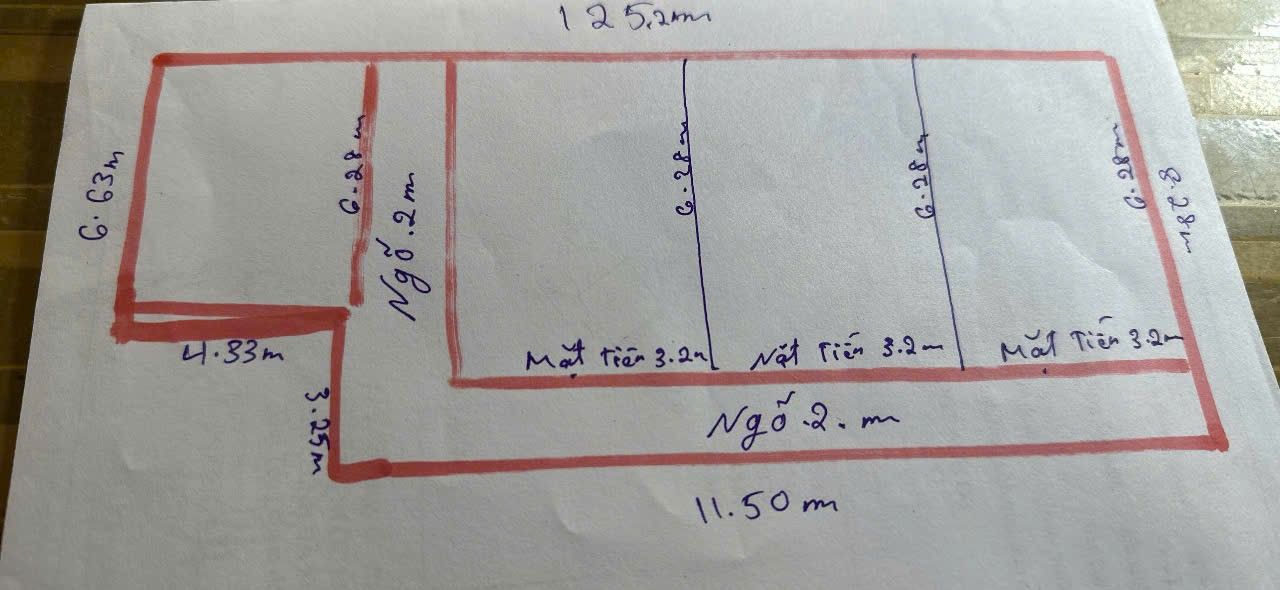 125.2m
6.63m
6.28m
Ngõ.2m
6.28m
6.28m
6.28m
8.28m
4.33m
3.25m
Mặt Tiền 3.2m
Mặt Tiền 3.2m
Mặt Tiền 3.2m
Ngõ.2.m
11.50m